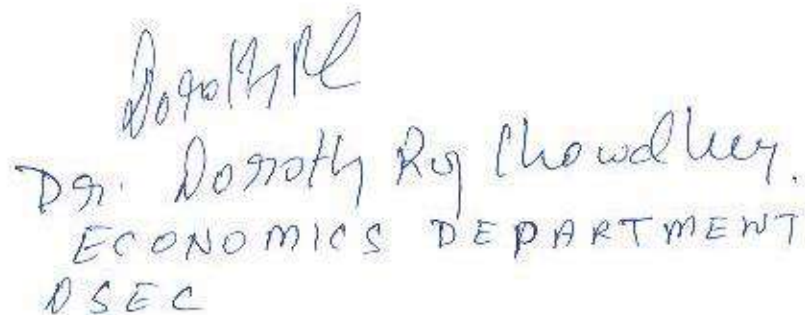 Dr. Dorothy Roy Chowdhury.
ECONOMICS DEPARTMENT
DSEC